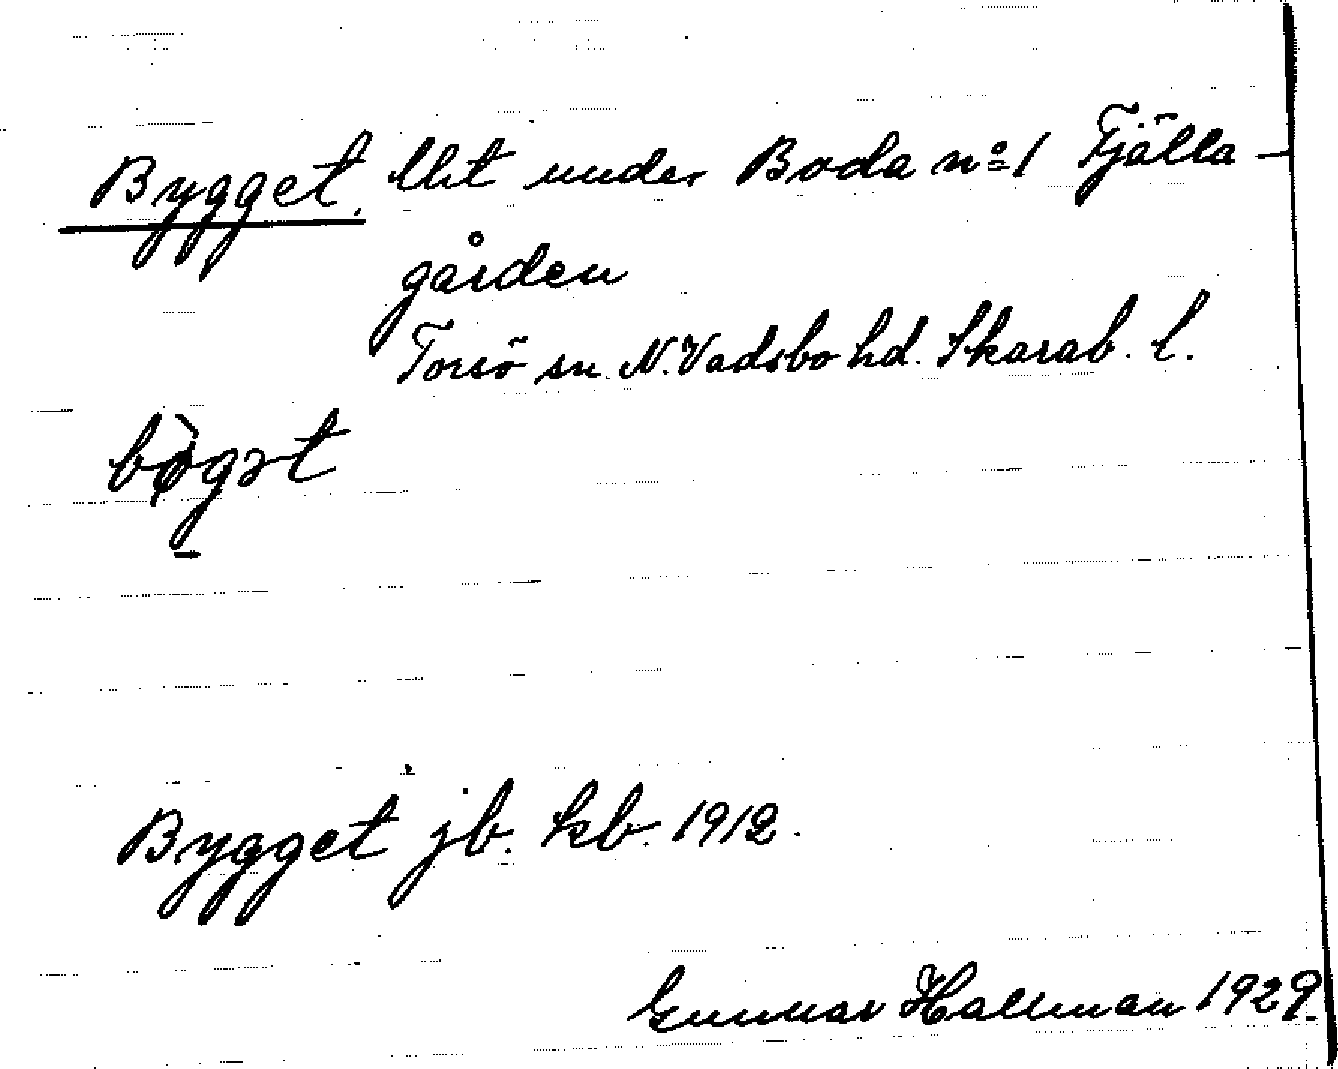 Bygget. Lht under Boda no 1 Fjälla-
gården
Torsö sn N. Vadsbo hd. Skarab. l.
bø̀gət
Bygget jb. kb. 1912.
Gunnar Hallman 1929.